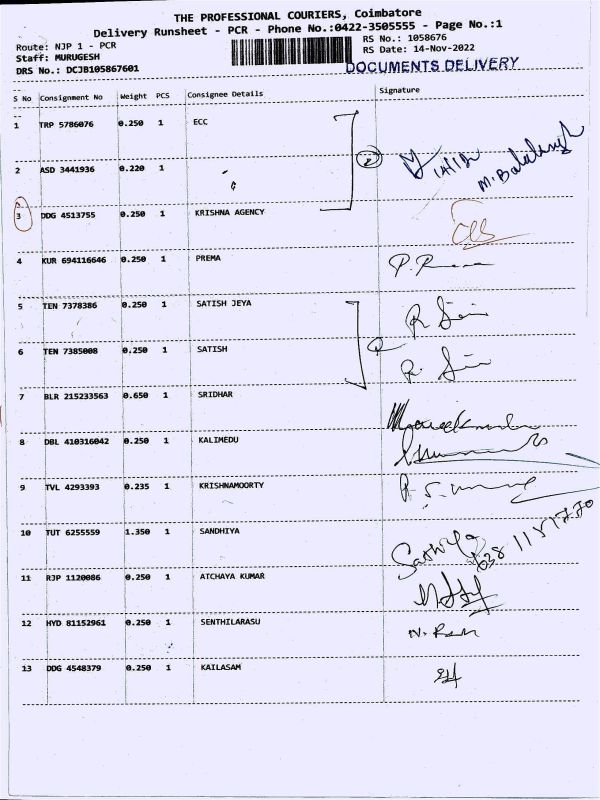 THE PROFESSIONAL COURIERS, Coimbatore
Delivery Runsheet - PCR - Phone No.:0422-3505555 - Page No.:1
Route: NJP 1 - PCR
RS No.: 1058676
Staff: MURUGESH
RS Date: 14-Nov-2022
DRS No.: DCJB105867601
DOCUMENTS DELIVERY
S No Consignment No Weight PCS Consignee Details Signature
1 TRP 5786076 0.250 1 ECC
2 ASD 3441936 0.220 1
3 DDG 4513755 0.250 1 KRISHNA AGENCY
4 KUR 694116646 0.250 1 PREMA
5 TEN 7378386 0.250 1 SATISH JEYA
6 TEN 7385008 0.250 1 SATISH
7 BLR 215233563 0.650 1 SRIDHAR
8 DBL 410316042 0.250 1 KALIMEDU
9 TVL 4293393 0.235 1 KRISHNAMOORTY
10 TUT 6255559 1.350 1 SANDHIYA
11 RJP 1120086 0.250 1 ATCHAYA KUMAR
12 HYD 81152961 0.250 1 SENTHILARASU
13 DDG 4548379 0.250 1 KAILASAM